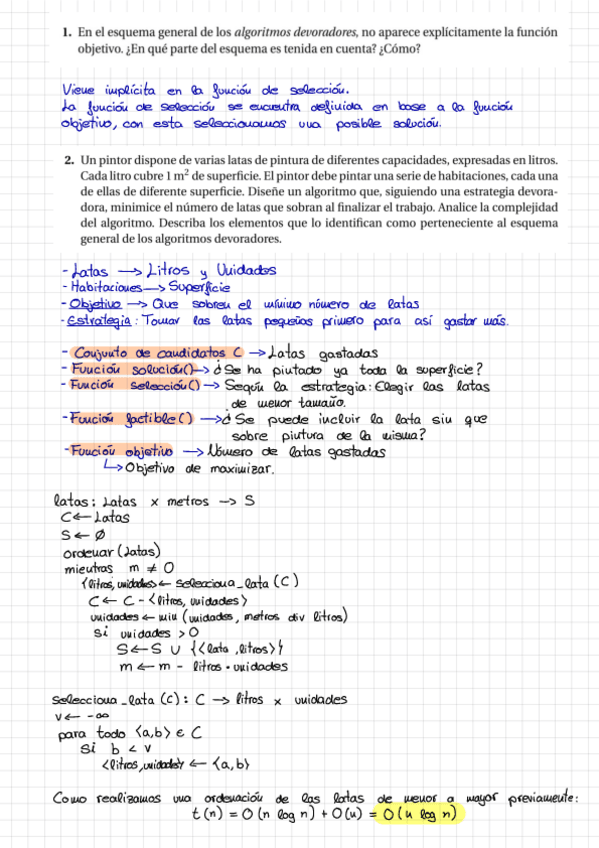 1. En el esquema general de los algoritmos devoradores, no aparece explícitamente la función
objetivo. ¿En qué parte del esquema es tenida en cuenta? ¿Cómo?
Viene implícita en la función de selección.
La función de selección se encuentra definida en base a la función
objetivo, con esta seleccionamos una posible solución.
2. Un pintor dispone de varias latas de pintura de diferentes capacidades, expresadas en litros.
Cada litro cubre 1 m² de superficie. El pintor debe pintar una serie de habitaciones, cada una
de ellas de diferente superficie. Diseñe un algoritmo que, siguiendo una estrategia devora-
dora, minimice el número de latas que sobran al finalizar el trabajo. Analice la complejidad
del algoritmo. Describa los elementos que lo identifican como perteneciente al esquema
general de los algoritmos devoradores.
- Latas → Litros y Unidades
- Habitaciones → Superficie
- Objetivo → Que sobren el mínimo número de latas
- Estrategia: Tomar las latas pequeñas primero para así gastar más.
- Conjunto de candidatos C → Latas gastadas
- Función solución() → ¿Se ha pintado ya toda la superficie?
- Función selección() → Según la estrategia: Elegir las latas
de menor tamaño.
- Función factible() → ¿Se puede incluir la lata sin que
sobre pintura de la misma?
- Función objetivo → Número de latas gastadas
↳ Objetivo de maximizar.
latas: Latas x metros → S
C ← Latas
S ← ∅
ordenar (Latas)
mientras m ≠ 0
⟨litros, unidades⟩ ← selecciona_lata (C)
C ← C - ⟨litros, unidades⟩
unidades ← min (unidades, metros div litros)
si unidades > 0
S ← S ∪ {⟨lata, litros⟩}
m ← m - litros · unidades
selecciona_lata (C): C → litros x unidades
v ← -∞
para todo ⟨a,b⟩ ∈ C
si b < v
⟨litros, unidades⟩ ← ⟨a,b⟩
Como realizamos una ordenación de las latas de menor a mayor previamente:
t(n) = O(n log n) + O(n) = O(n log n)